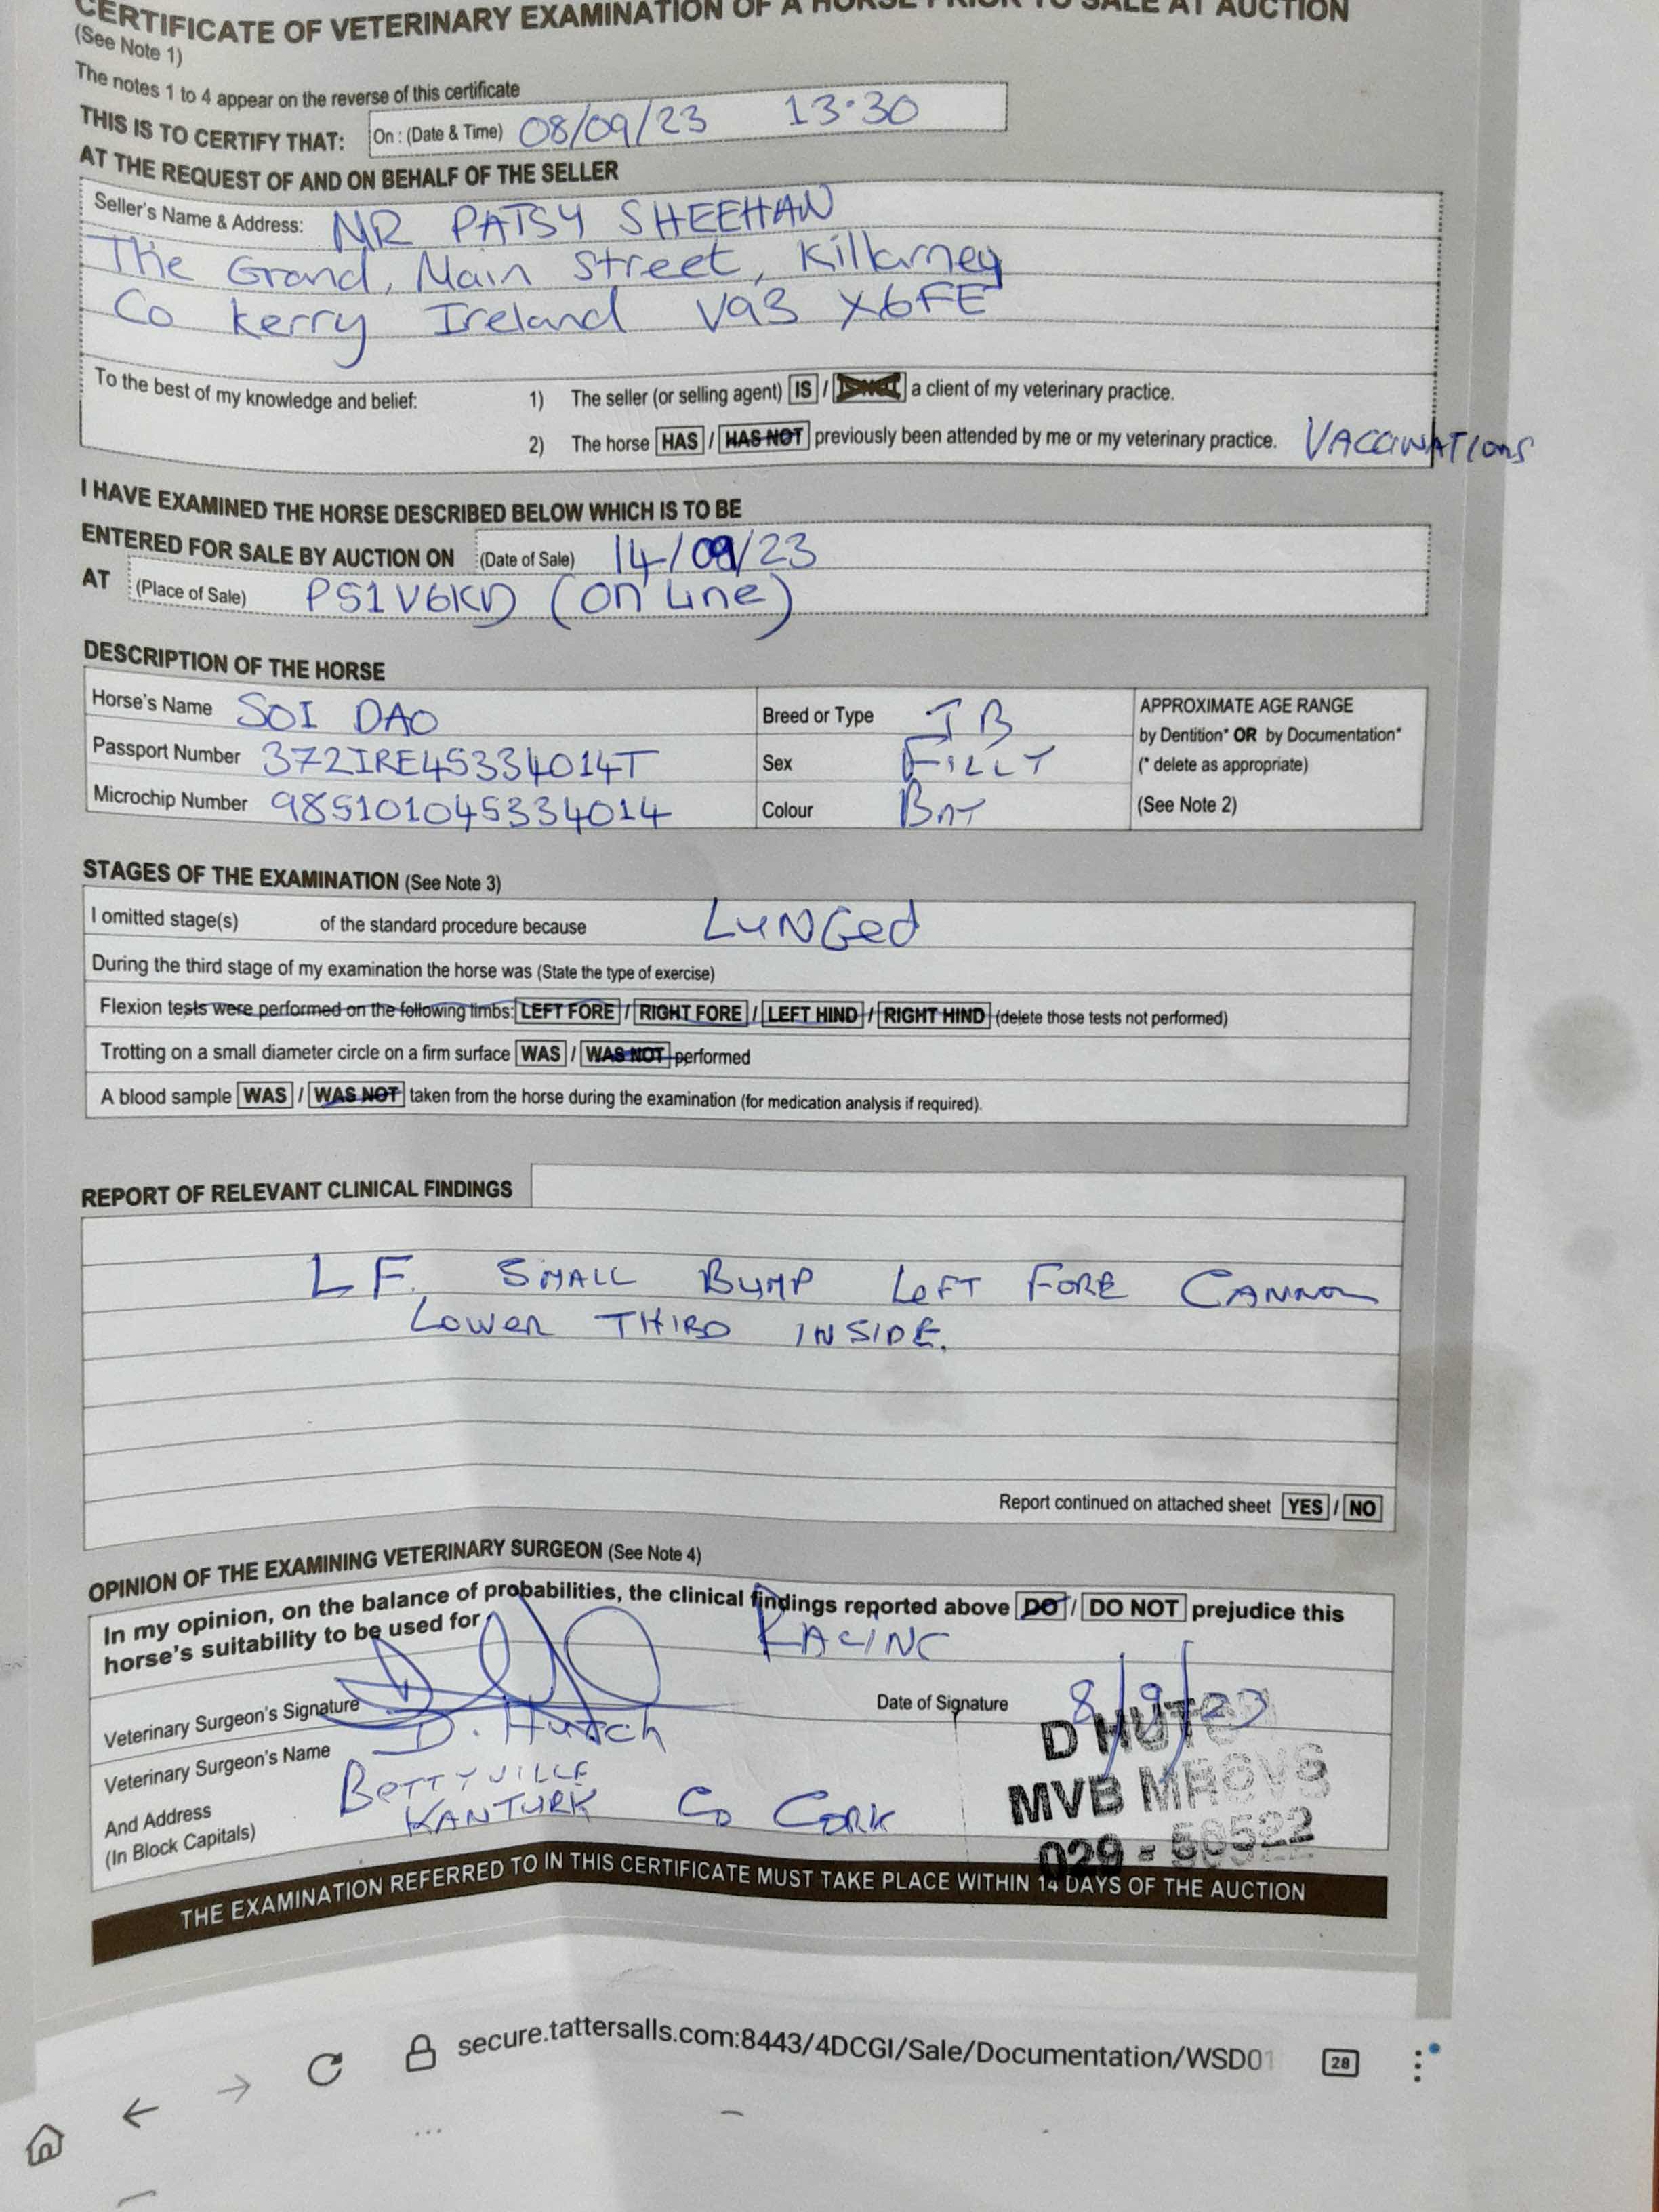 CERTIFICATE OF VETERINARY EXAMINATION OF A HORSE PRIOR TO SALE AT AUCTION
(See Note 1)
The notes 1 to 4 appear on the reverse of this certificate
THIS IS TO CERTIFY THAT: On : (Date & Time) 08/09/23 13·30
AT THE REQUEST OF AND ON BEHALF OF THE SELLER
Seller's Name & Address: MR PATSY SHEEHAN
The Grand, Main Street, Killarney
Co kerry Ireland V93 X6FE
To the best of my knowledge and belief: 1) The seller (or selling agent) IS / IS NOT a client of my veterinary practice.
2) The horse HAS / HAS NOT previously been attended by me or my veterinary practice. VACCINATIONS
I HAVE EXAMINED THE HORSE DESCRIBED BELOW WHICH IS TO BE
ENTERED FOR SALE BY AUCTION ON (Date of Sale) 14/09/23
AT (Place of Sale) PS1V6KD (ON LINE)
DESCRIPTION OF THE HORSE
Horse's Name SOI DAO Breed or Type TB APPROXIMATE AGE RANGE
by Dentition* OR by Documentation*
Passport Number 372IRE45334014T Sex FILLY (* delete as appropriate)
Microchip Number 985101045334014 Colour BAY (See Note 2)
STAGES OF THE EXAMINATION (See Note 3)
I omitted stage(s) of the standard procedure because LUNGed
During the third stage of my examination the horse was (State the type of exercise)
Flexion tests were performed on the following limbs: LEFT FORE / RIGHT FORE / LEFT HIND / RIGHT HIND (delete those tests not performed)
Trotting on a small diameter circle on a firm surface WAS / WAS NOT performed
A blood sample WAS / WAS NOT taken from the horse during the examination (for medication analysis if required).
REPORT OF RELEVANT CLINICAL FINDINGS
LF. SMALL BUMP LEFT FORE CANNON
LOWER THIRD INSIDE.
Report continued on attached sheet YES / NO
OPINION OF THE EXAMINING VETERINARY SURGEON (See Note 4)
In my opinion, on the balance of probabilities, the clinical findings reported above DO / DO NOT prejudice this
horse's suitability to be used for RACING
Veterinary Surgeon's Signature Date of Signature 8/9/23
Veterinary Surgeon's Name D. Hutch
And Address BETTYVILLE
(In Block Capitals) KANTURK CO CORK
D HUTCH
MVB MRCVS
029 - 56522
THE EXAMINATION REFERRED TO IN THIS CERTIFICATE MUST TAKE PLACE WITHIN 14 DAYS OF THE AUCTION
secure.tattersalls.com:8443/4DCGI/Sale/Documentation/WSD01
28